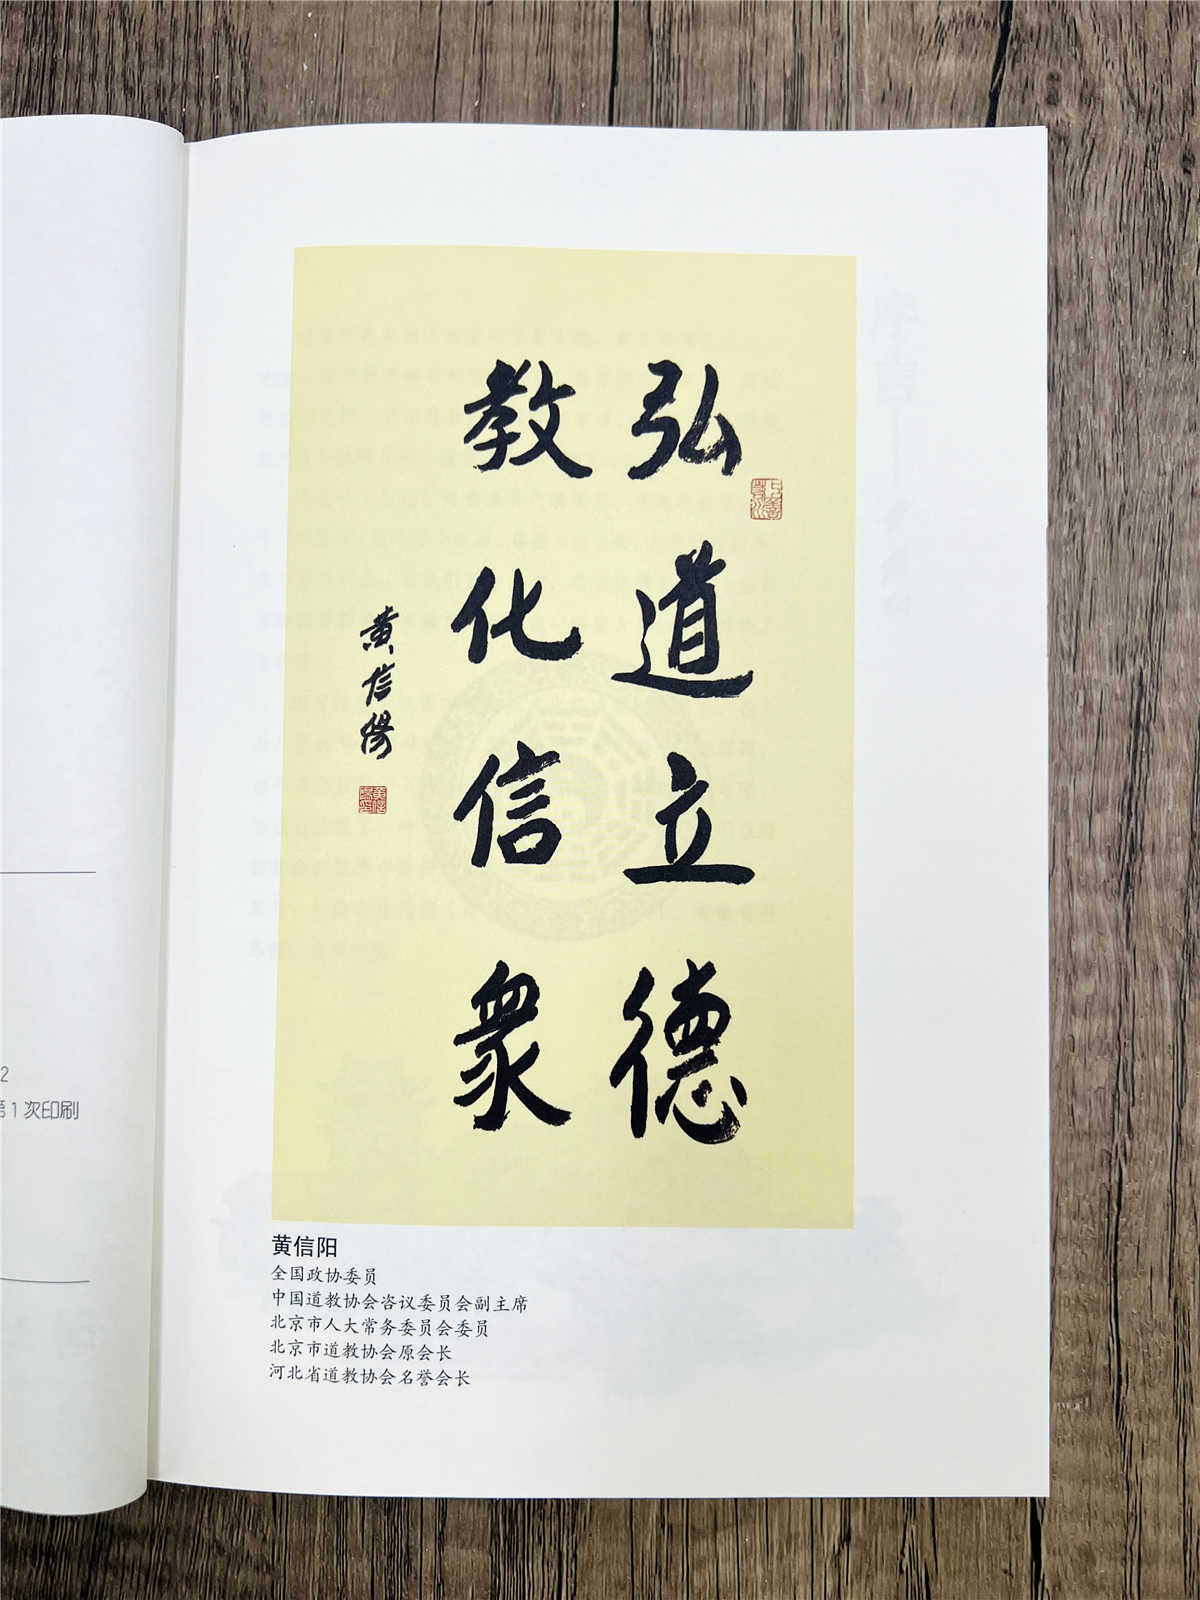 弘道立德
教化信衆
黄信陽
黄信阳
全国政协委员
中国道教协会咨议委员会副主席
北京市人大常务委员会委员
北京市道教协会原会长
河北省道教协会名誉会长
2
第1次印刷